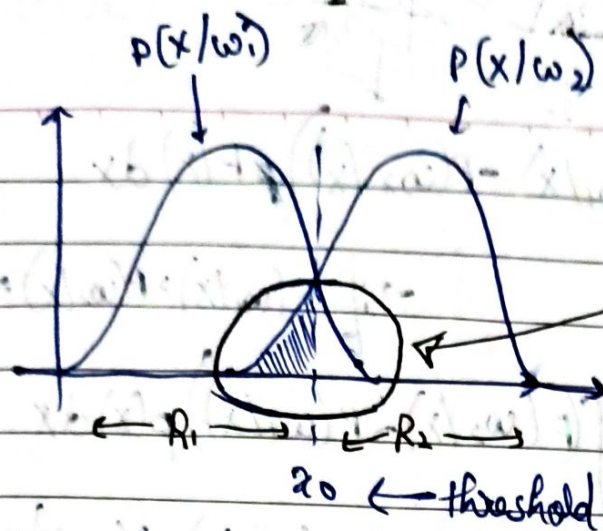 p(x/ω₁)
p(x/ω₂)
R₁
R₂
x₀ ← threshold